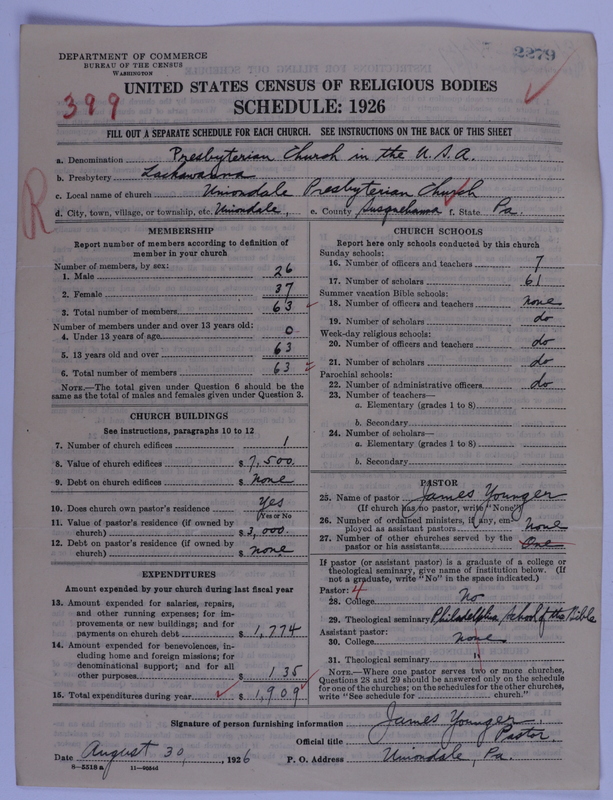 2279
DEPARTMENT OF COMMERCE
BUREAU OF THE CENSUS
WASHINGTON
UNITED STATES CENSUS OF RELIGIOUS BODIES
399
SCHEDULE: 1926
FILL OUT A SEPARATE SCHEDULE FOR EACH CHURCH. SEE INSTRUCTIONS ON THE BACK OF THIS SHEET
a. Denomination Presbyterian Church in the U.S.A.
b. Presbytery Lackawanna
c. Local name of church Uniondale Presbyterian Church
R
d. City, town, village, or township, etc. Uniondale, e. County Susquehanna f. State Pa.
MEMBERSHIP
Report number of members according to definition of
member in your church
Number of members, by sex:
1. Male 26
2. Female 37
3. Total number of members 63
Number of members under and over 13 years old:
4. Under 13 years of age 0
5. 13 years old and over 63
6. Total number of members 63
NOTE.—The total given under Question 6 should be the
same as the total of males and females given under Question 3.
CHURCH BUILDINGS
See instructions, paragraphs 10 to 12
7. Number of church edifices 1
8. Value of church edifices $ 7,500.
9. Debt on church edifices $ none
10. Does church own pastor's residence Yes
(Yes or No
11. Value of pastor's residence (if owned by
church) $ 3,000.
12. Debt on pastor's residence (if owned by
church) $ none
EXPENDITURES
Amount expended by your church during last fiscal year
13. Amount expended for salaries, repairs,
and other running expenses; for im-
provements or new buildings; and for
payments on church debt $ 1,774
14. Amount expended for benevolences, in-
cluding home and foreign missions; for
denominational support; and for all
other purposes $ 135
15. Total expenditures during year $ 1,909
CHURCH SCHOOLS
Report here only schools conducted by this church
Sunday schools:
16. Number of officers and teachers 7
17. Number of scholars 61
Summer vacation Bible schools:
18. Number of officers and teachers none
19. Number of scholars do
Week-day religious schools:
20. Number of officers and teachers do
21. Number of scholars do
Parochial schools:
22. Number of administrative officers do
23. Number of teachers—
a. Elementary (grades 1 to 8)
b. Secondary
24. Number of scholars—
a. Elementary (grades 1 to 8)
b. Secondary
PASTOR
25. Name of pastor James Younger
(If church has no pastor, write "None")
26. Number of ordained ministers, if any, em-
ployed as assistant pastors None
27. Number of other churches served by the
pastor or his assistants One
If pastor (or assistant pastor) is a graduate of a college or
theological seminary, give name of institution below. (If
not a graduate, write "No" in the space indicated.)
Pastor: 4
28. College No
29. Theological seminary Philadelphia, School of the Bible
Assistant pastor:
30. College none
31. Theological seminary "
NOTE.—Where one pastor serves two or more churches,
Questions 28 and 29 should be answered only on the schedule
for one of the churches; on the schedules for the other churches,
write "See schedule for ______ church."
Signature of person furnishing information James Younger.
Official title Pastor.
Date August 30, 1926 P. O. Address Uniondale, Pa.
8—5518 a 11—9054d